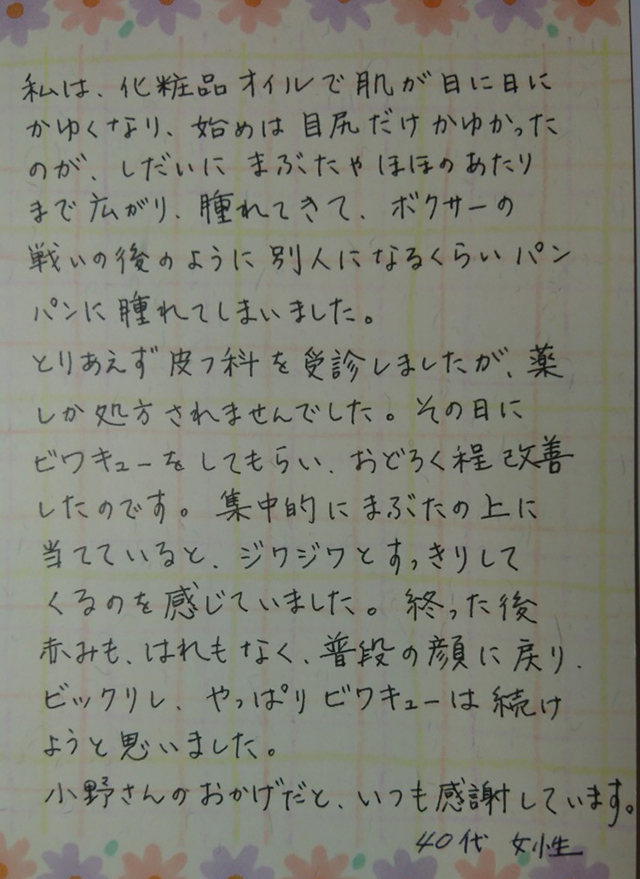 私は、化粧品オイルで肌が日に日に
かゆくなり、始めは目尻だけかゆかった
のが、しだいにまぶたやほほのあたり
まで広がり、腫れてきて、ボクサーの
戦いの後のように別人になるくらいパン
パンに腫れてしまいました。
とりあえず皮フ科を受診しましたが、薬
しか処方されませんでした。その日に
ビワキューをしてもらい、おどろく程改善
したのです。集中的にまぶたの上に
当てていると、ジワジワとすっきりして
くるのを感じていました。終った後
赤みも、はれもなく、普段の顔に戻り、
ビックリし、やっぱりビワキューは続け
ようと思いました。
小野さんのおかげだと、いつも感謝しています。
40代 女性